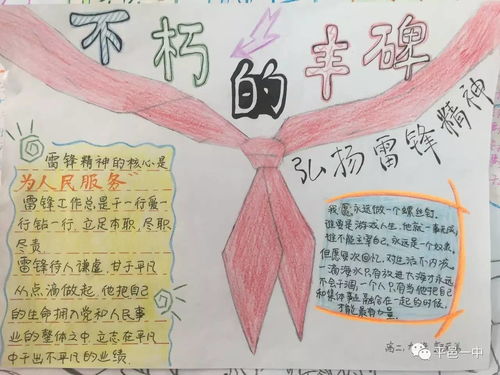 不朽的丰碑
弘扬雷锋精神
雷锋精神的核心是
为人民服务
雷锋工作总是干一行爱一
行钻一行,立足本职,尽职
尽责
雷锋待人谦虚,甘于平凡
从点滴做起,他把自己
的生命拥入党和人民事
业的整体之中,立志在平凡
中干出不平凡的业绩.
我愿永远做一个螺丝钉.
谁要是游戏人生,他就一事无成,
谁不能主宰自己,永远是一个奴隶.
但愿每次回忆,对生活不内疚.
一滴海水只有放进大海才永远
不会干涸,一个人只有当他把自己
和集体事业融合在一起的时候,
才能最有力量.
高二,
平邑一中